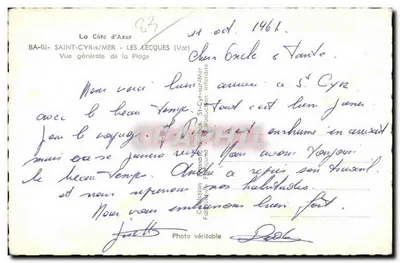 83
La Côte d'Azur
BA-03- SAINT-CYR-s/MER - LES LECQUES (Var)
Vue générale de la Plage
11 oct. 1961
Chers Oncle & Tante
Nous voici bien arrivés à St Cyr
avec le beau temps. Tout s'est bien passé
pour le voyage. est enrhumé en arrivant
mais ça se passera vite. Nous avons toujours
le beau temps. André a repris son travail
et nous reprenons nos habitudes.
Nous vous embrassons bien fort.
Photo véritable